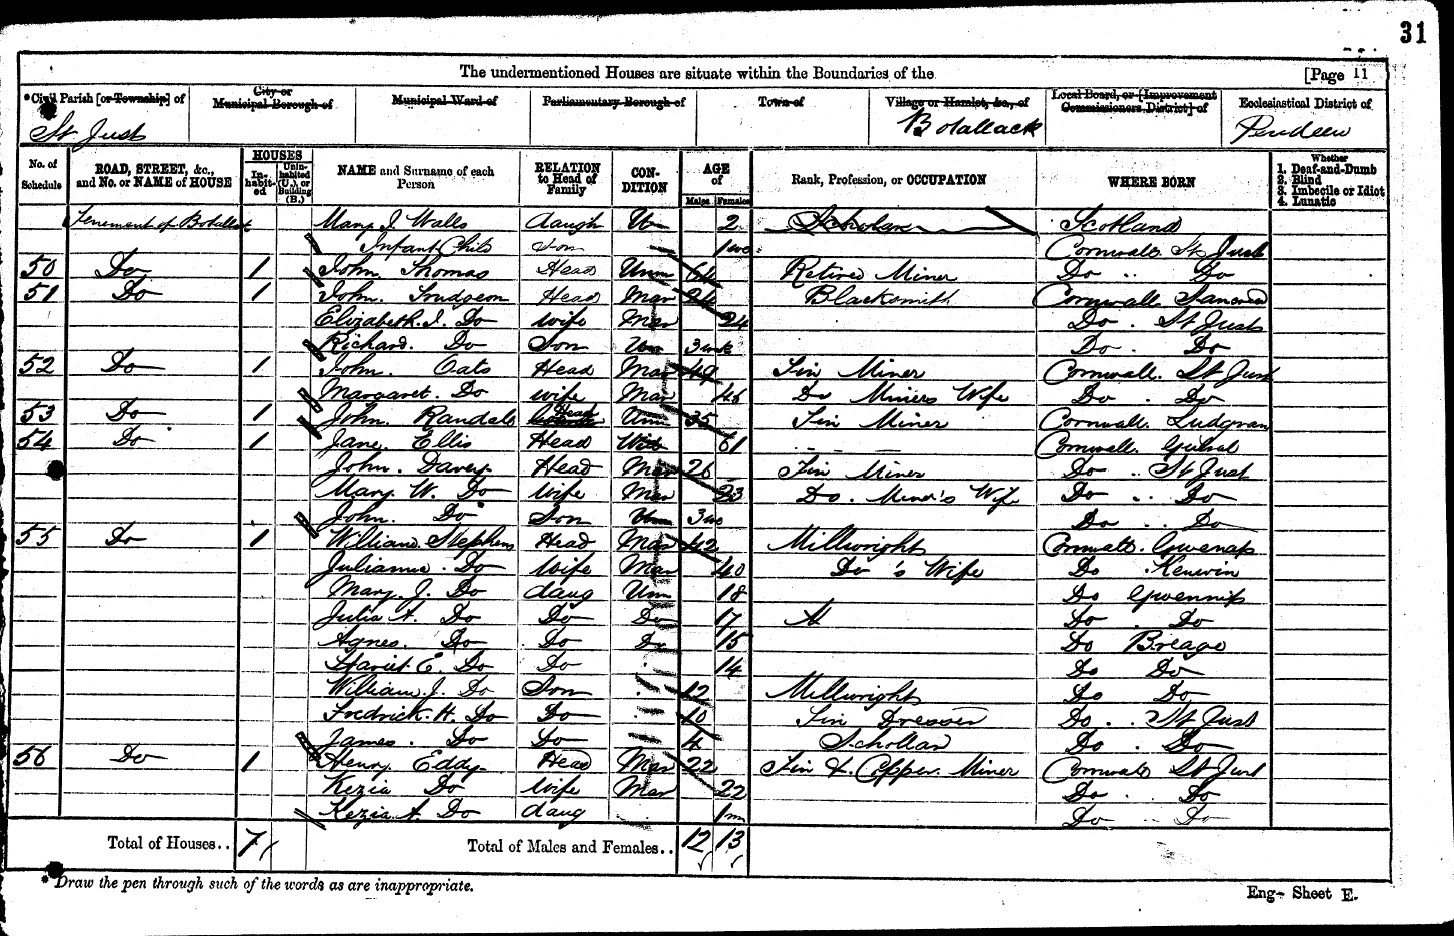 31
The undermentioned Houses are situate within the Boundaries of the
[Page 11
*Civil Parish [or Township] of
City or Municipal Borough of
Municipal Ward of
Parliamentary Borough of
Town of
Village or Hamlet, &c., of
Local Board, or [Improvement Commissioners District] of
Ecclesiastical District of
St Just
Botallack
Pendeen
No. of Schedule
ROAD, STREET, &c., and No. or NAME of HOUSE
HOUSES
In-habit-ed
Unin-habited (U.), or Building (B.)
NAME and Surname of each Person
RELATION to Head of Family
CON-DITION
AGE of
Males
Females
Rank, Profession, or OCCUPATION
WHERE BORN
Whether
1. Deaf-and-Dumb
2. Blind
3. Imbecile or Idiot
4. Lunatic
Tenement of Botallack Mary J. Walls daugh Un 2 Scholar Scotland
Infant Child Son 1 Cornwall St Just
50 Do 1 John Thomas Head Unm 64 Retired Miner Do Do
51 Do 1 John. Trudgeon Head Mar 24 Blacksmith Cornwall Sancreed
Elizabeth. J. Do Wife Mar 24 Do . St Just
Richard. Do Son Un 3 wk Do . Do
52 Do 1 John. Oats Head Mar 49 Tin Miner Cornwall. St Just
Margaret. Do wife Mar 46 Do Miners Wife Do . Do
53 Do 1 John. Randall Head Unm 35 Tin Miner Cornwall. Ludgvan
54 Do 1 Jane Ellis Head Wid 61 Cornwall. Gulval
John. Davey Head Mar 26 Tin Miner Do .. St Just
Mary. W. Do Wife Mar 23 Do. Miner's Wife Do .. Do
John. Do Son Unm 3 Do .. Do
55 Do 1 William Stephens Head Mar 42 Millwright Cornwall. Gwenap
Julianna. Do Wife Mar 40 Do 's Wife Do . Kenwin
Mary. J. Do daug Unm 18 Do Gwennip
Julia A. Do Do Do 17 Do . Do
Agnes. Do Do Do 15 Do Breage
Hariet. E. Do Do 14 Do Do
William. J. Do Son 12 Millwright Do Do
Fredrick. H. Do Do 10 Tin Dresser Do .. St Just
James. Do Do 4 Schollar Do . Do
56 Do 1 Henry. Eddy Head Mar 22 Tin & Copper Miner Cornwall St Just
Kezia Do Wife Mar 22 Do . Do
Kezia. A. Do daug 1m Do .. Do
Total of Houses.. 7
Total of Males and Females.. 12 13
* Draw the pen through such of the words as are inappropriate.
Eng- Sheet E.